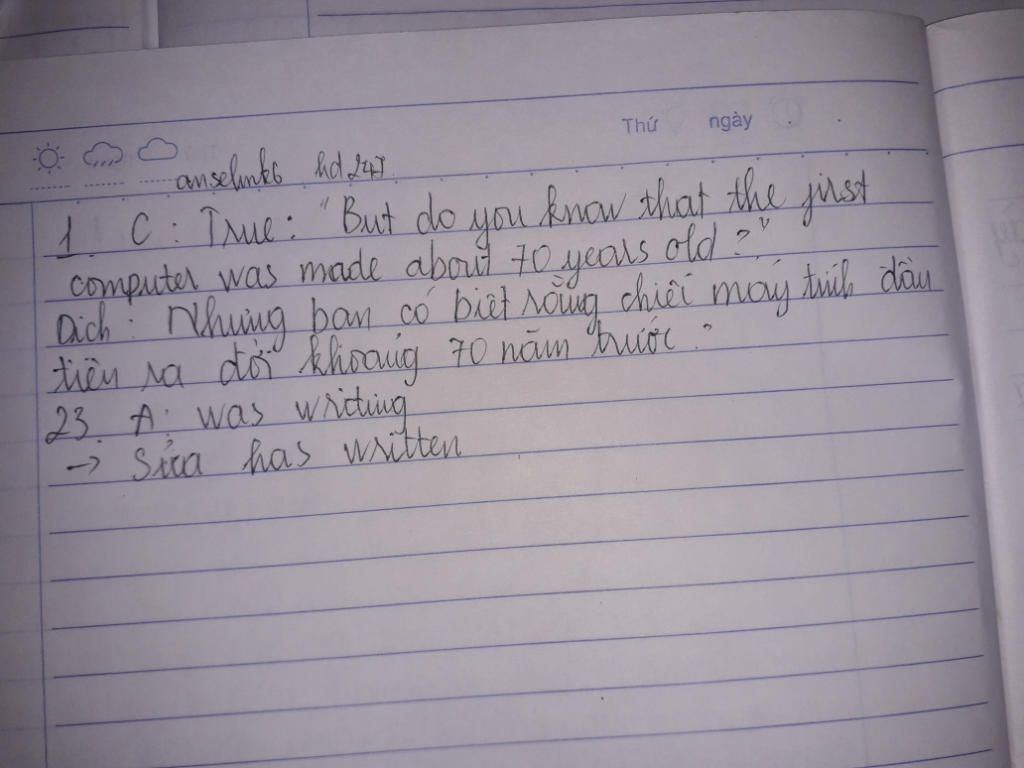 Thứ ngày
anselmk6 hd247
1 C : True : "But do you know that the first
computer was made about 70 years old ?"
Dịch : Nhưng bạn có biết rằng chiếc máy tính đầu
tiên ra đời khoảng 70 năm trước ?
23. A: was writing
→ Sửa has written